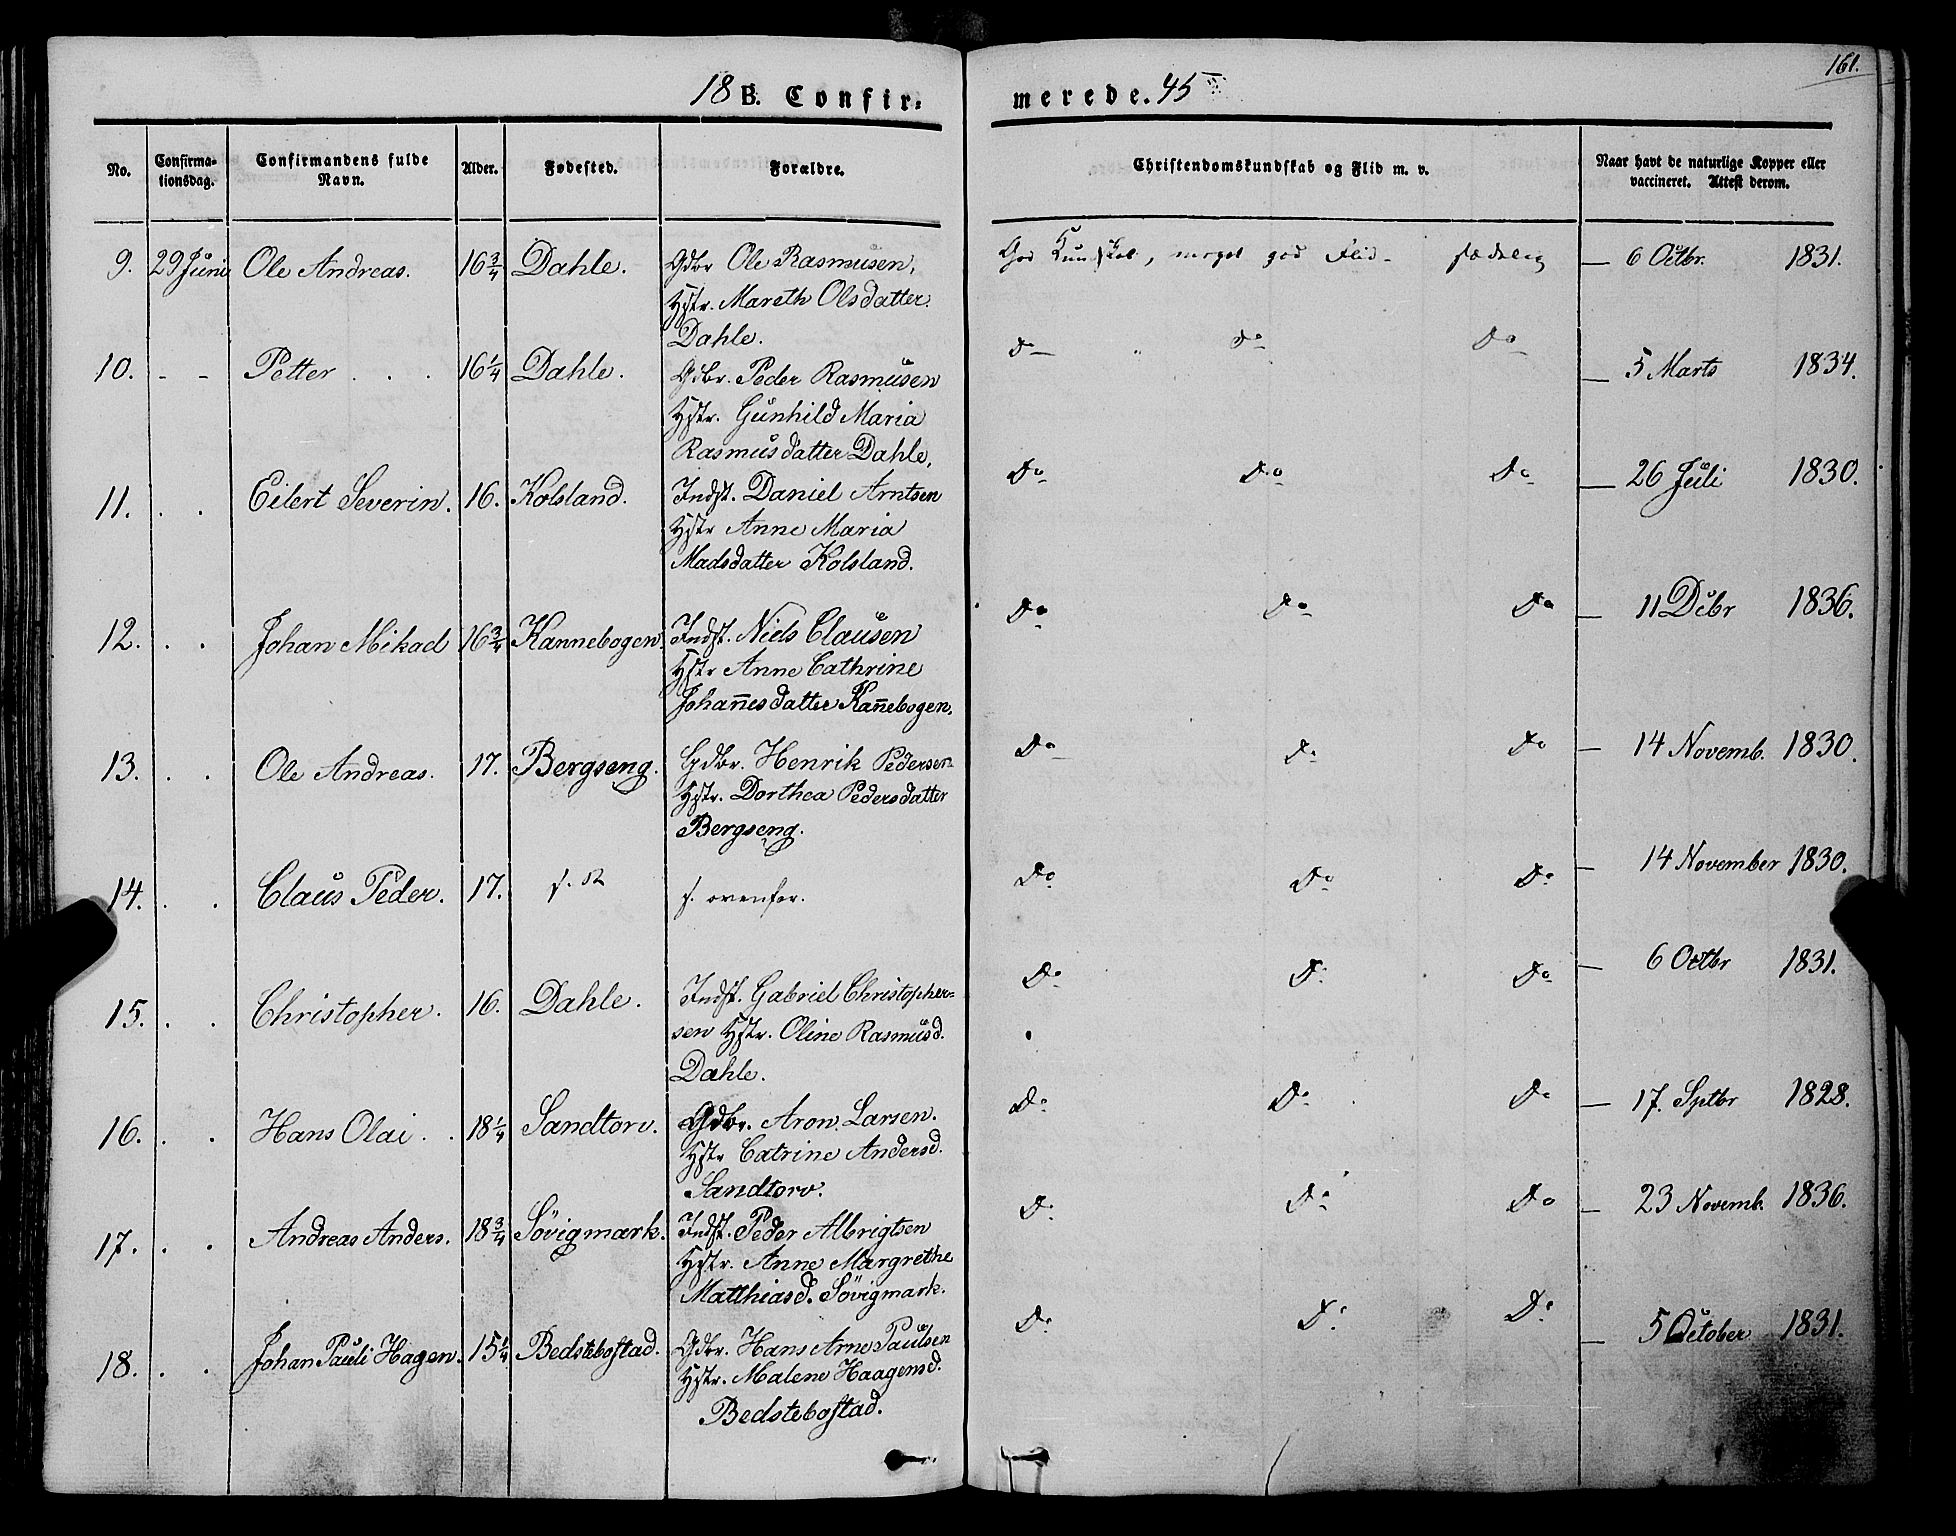 161.
18 B. Confir= merede. 45
No. Confirma-tionsdag. Confirmandens fulde Navn. Alder. Fødested. Forældre. Christendomskundskab og Flid m. v. Naar havt de naturlige Kopper eller vaccineret. Attest derom.
9. 29 Juni Ole Andreas. 16 3/4 Dahle. Gdbr Ole Rasmusen, God Kundskab, meget god Flid - sædelig — 6 Octbr. 1831.
Hstr. Mareth Olsdatter.
Dahle.
10. - - Petter . . . 16 1/4 Dahle. Gdbr. Peder Rasmusen Do Do Do — 5 Marts 1834.
Hstr. Gunhild Maria
Rasmusdatter Dahle,
11. . . Eilert Severin. 16. Kolsland. Indst. Daniel Arntsen Do Do Do — 26 Juli 1830.
Hstr Anne Maria
Madsdatter Kolsland.
12. . . Johan Mikad 16 3/4 Kannebogen. Indst. Niels Clausen Do Do Do — 11 Debr 1836.
Hstr Anne Cathrine
Johan̄esdatter Kan̄ebogen,
13. . . Ole Andreas. 17. Bergseng. Gdbr. Henrik Pedersen Do Do Do — 14 Novemb. 1830.
Hstr. Dorthea Pedersdatter
Bergseng.
14. . . Claus Peder. 17. f. ovenfor. Do Do Do — 14 November 1830.
15. . . Christopher. 16. Dahle. Indst. Gabriel Christopher= Do Do Do — 6 Octbr 1831.
sen Hstr. Oline Rasmusd.
Dahle.
16. . . Hans Olai . . 18 1/4 Sandtorv. Gdbr. Aron Larsen. Do Do Do — 17. Sptbr 1828.
Hstr Catrine Andersd.
Sandtorv.
17. . . Andreas Anders. 18 3/4 Sövigmark. Indst. Peder Albrigtsen Do Do Do — 23 Novemb. 1836.
Hstr. Anne Margrethe
Matthiasd. Sövigmark.
18. . . Johan Pauli Hagen. 15 1/4 Bedstebostad. Gdbr. Hans Arne Paulsen Do Do Do — 5 October 1831.
Hstr. Malene Haagensd.
Bedstebostad.